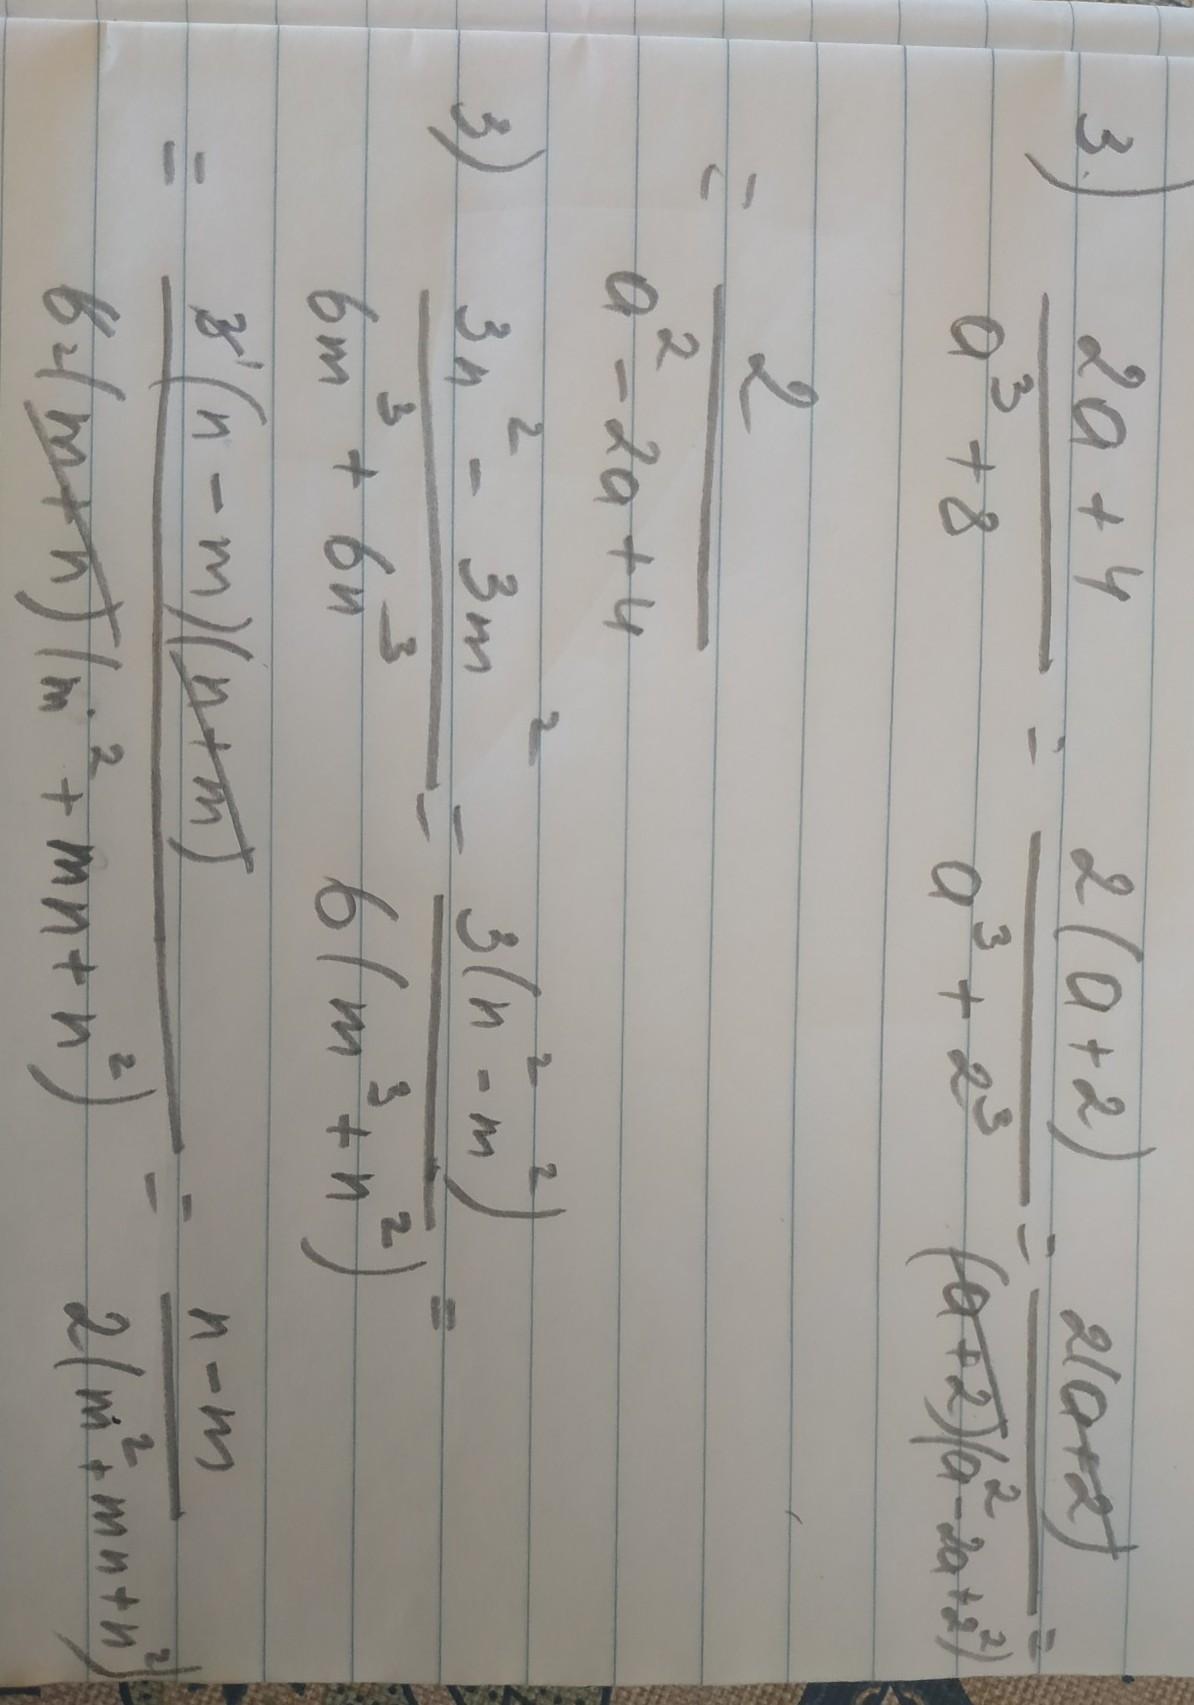 3) (2a + 4)/(a³ + 8) = 2(a+2)/(a³ + 2³) = 2(a+2)/((a+2)(a² - 2a + 2²)) =
= 2/(a² - 2a + 4)
3) (3n² - 3m²)/(6m³ + 6n³) = 3(n² - m²)/(6(m³ + n²)) =
= 3¹(n - m)(n+m)/(6₂(m+n)(m² + mn + n²)) = (n - m)/(2(m² + mn + n²))